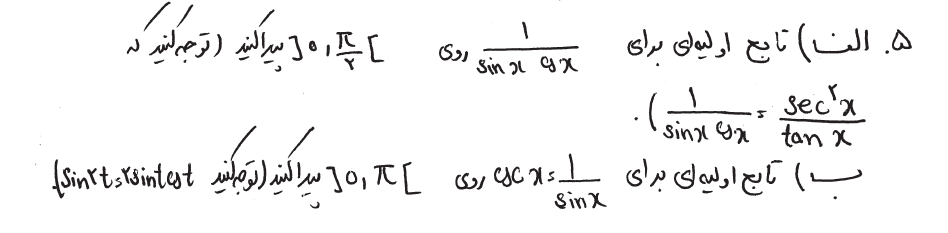 ۵. الف) تابع اولیه‌ای برای 1/(sin x cos x) روی ]۰, π/۲[ پیدا کنید (توجه کنید که
1/(sin x cos x) = sec^۲ x / tan x).
ب) تابع اولیه‌ای برای csc x = 1/sin x روی ]۰, π[ پیدا کنید (توجه کنید sin ۲t = ۲ sin t cos t).